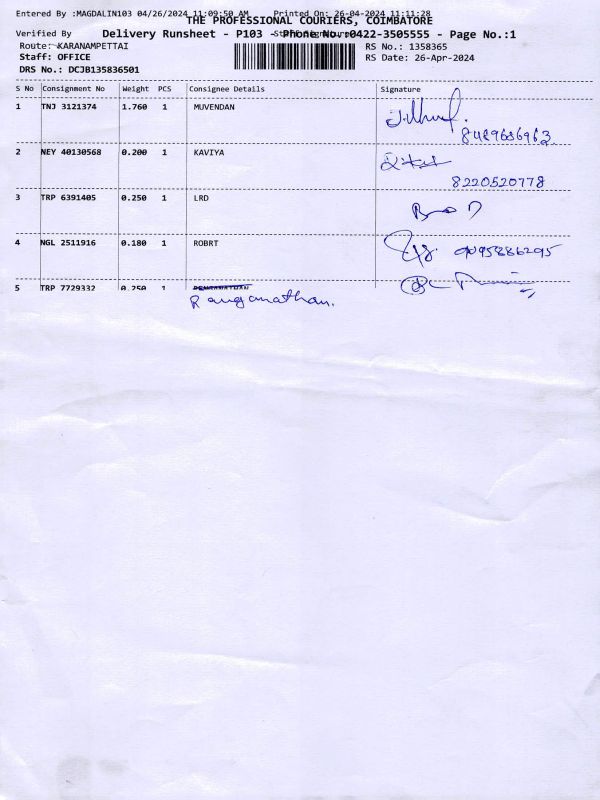 Entered By :MAGDALIN103 04/26/2024 11:09:50 AM Printed On: 26-04-2024 11:11:28
THE PROFESSIONAL COURIERS, COIMBATORE
Verified By Staff Signature
Delivery Runsheet - P103 - Phone No.:0422-3505555 - Page No.:1
Route: KARANAMPETTAI RS No.: 1358365
Staff: OFFICE RS Date: 26-Apr-2024
DRS No.: DCJB135836501
S No Consignment No Weight PCS Consignee Details Signature
1 TNJ 3121374 1.760 1 MUVENDAN
8489686963
2 NEY 40130568 0.200 1 KAVIYA
8220520778
3 TRP 6391405 0.250 1 LRD
4 NGL 2511916 0.180 1 ROBRT 9095886295
5 TRP 7729332 0.250 1
Ranganathan.